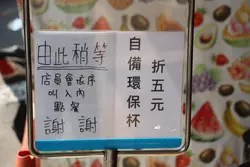 由此稍等
店員會依序
叫入內
點餐
謝謝
自備環保杯
折五元